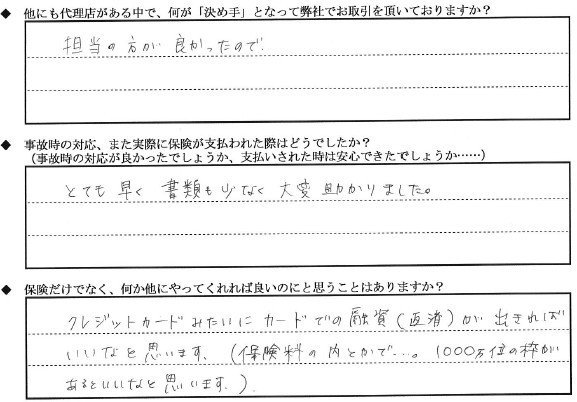 ◆ 他にも代理店がある中で、何が「決め手」となって弊社でお取引を頂いておりますか？
担当の方が良かったので
◆ 事故時の対応、また実際に保険が支払われた際はどうでしたか？
（事故時の対応が良かったでしょうか、支払いされた時は安心できたでしょうか……）
とても早く書類も少なく大変助かりました。
◆ 保険だけでなく、何か他にやってくれれば良いのにと思うことはありますか？
クレジットカードみたいにカードでの融資(返済)が出きれば
いいなと思います。(保険料の内とかで…。1000万位の枠が
あるといいなと思います。)